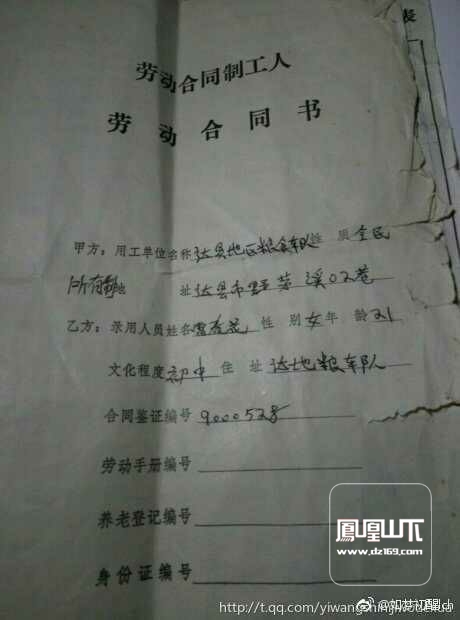 表
劳动合同制工人
劳动合同书
甲方：用工单位名称达县地区粮食车队性质全民
所有制地址达县市野茅溪口巷
乙方：录用人员姓名 性别女年龄21
文化程度初中住址达地粮车队
合同鉴证编号9000528
劳动手册编号
养老登记编号
身份证编号
鳳凰山下
www.dz169.com
@如若初醒ch
http://t.qq.com/yiwang